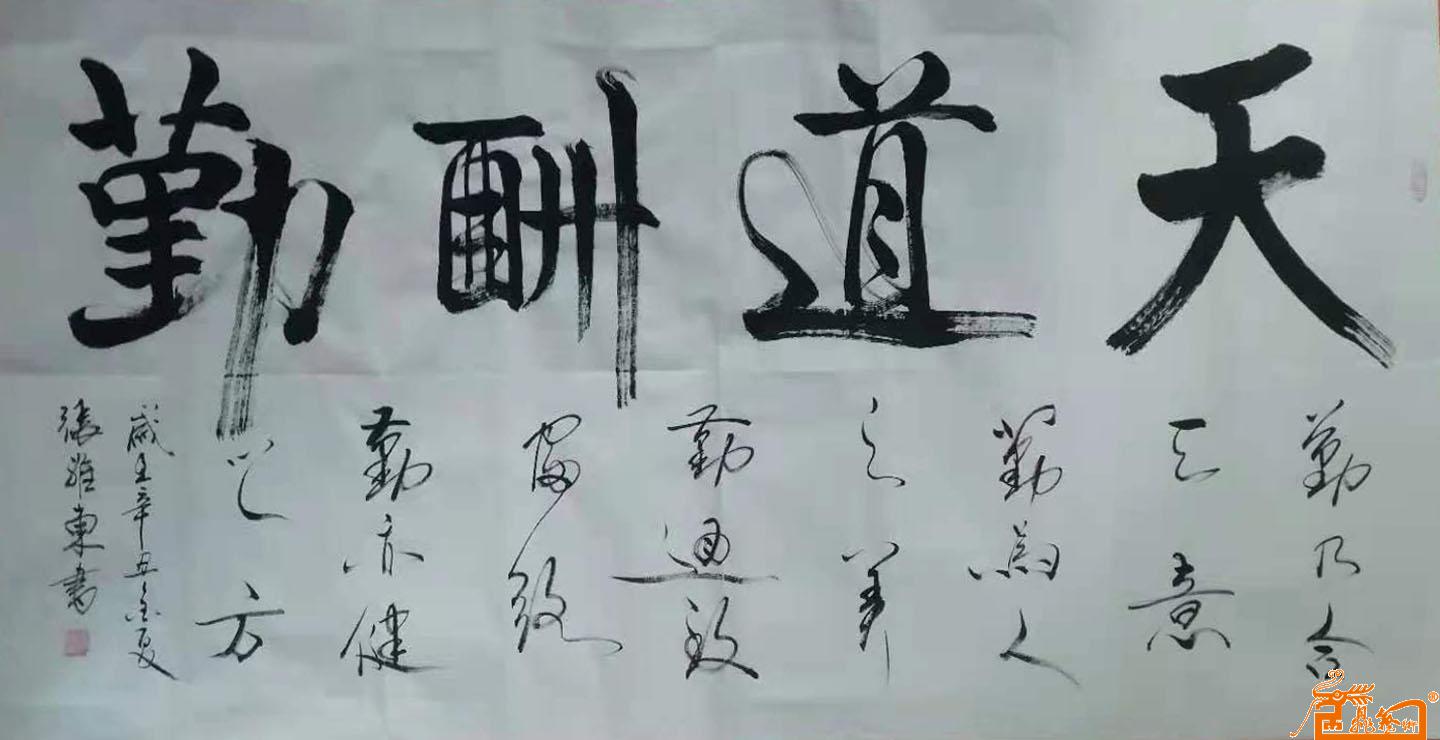 天道酬勤
勤乃合
天意
勤為人
之美
勤通致
富
勤亦健
方
歲在辛丑夏
張維東書